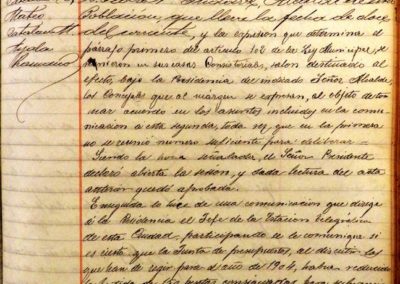 Mateo
Ayala
Poblacion, que lleva la fecha de doce
del corriente, y la expresion que determina el
parrafo primero del articulo 102 de la Ley Municipal, se
reunieron en sus casas Consistoriales, salon destinado al
efecto, bajo la Presidencia del indicado Señor Alcalde
los Concejales que al margen se expresan, al objeto de to-
mar acuerdo en los asuntos incluidos en la comu-
nicacion a esta segunda, toda vez, que en la primera
no se reunió numero suficiente para deliberar.
Siendo la hora señalada, el Señor Presidente
declaró abierta la sesion, y dada lectura del acta
anterior quedó aprobada.
Enseguida se hizo de una comunicacion que dirige
á la Presidencia el Jefe de la Estacion telegrafica
de esta Ciudad, participando se le comunique si
es cierto que la Junta de presupuestos, al discutir los
que han de regir para el año de 1904, habia reducido